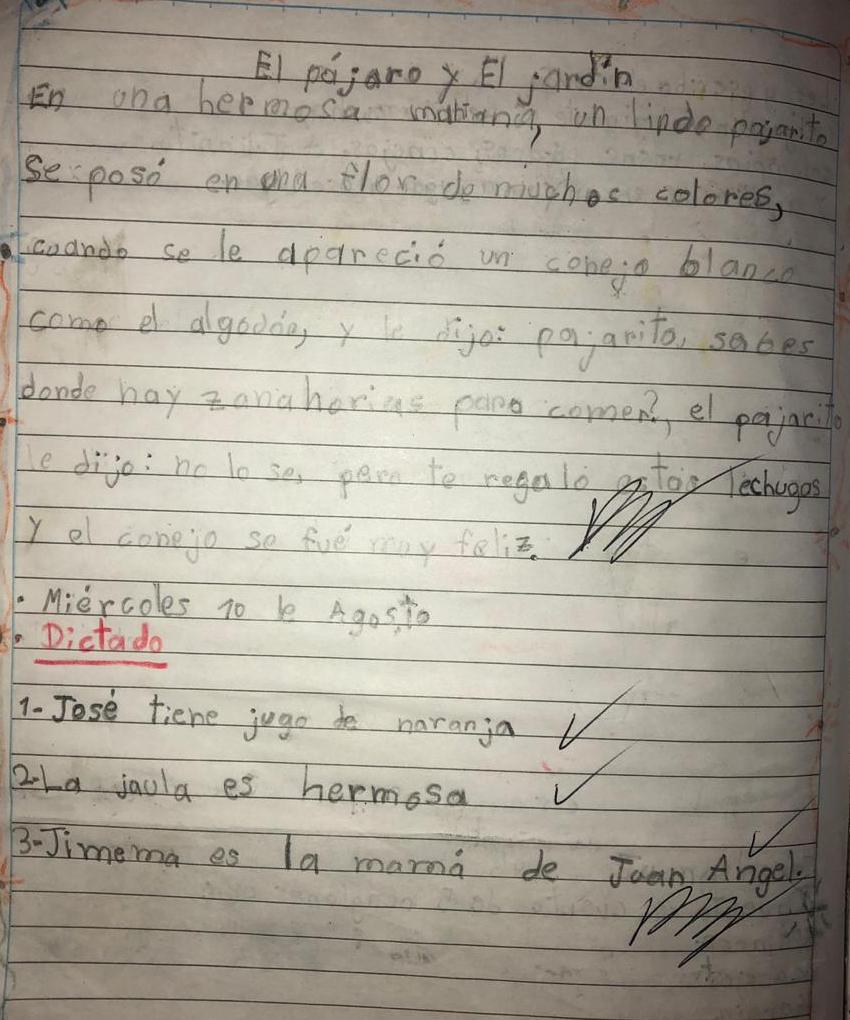 El pájaro y El jardín
En una hermosa mañana, un lindo pajarito
se posó en una flor de muchos colores,
cuando se le apareció un conejo blanco
como el algodón, y le dijo: pajarito, sabes
donde hay zanahorias para comer?, el pajarito
le dijo: no lo se, pero te regalo estas lechugas
y el conejo se fué muy feliz.
• Miércoles 10 de Agosto
• Dictado
1-José tiene jugo de naranja
2-La jaula es hermosa
3-Jimema es la mamá de Juan Angel.